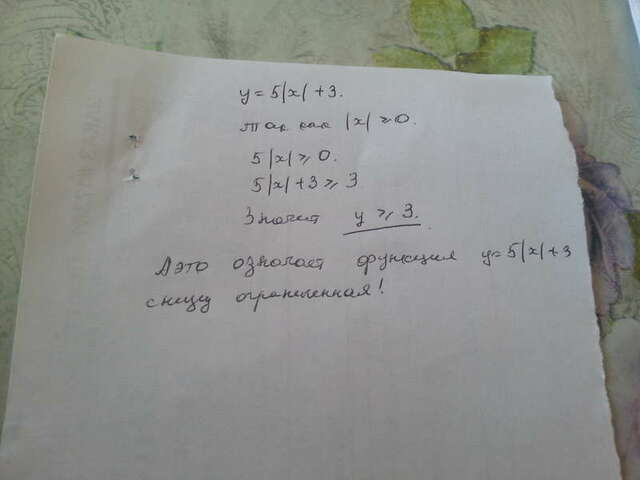 y = 5|x| + 3.
так как |x| ≥ 0.
5|x| ≥ 0.
5|x| + 3 ≥ 3
Значит y ≥ 3.
А это означает функция y = 5|x| + 3
снизу ограниченная!